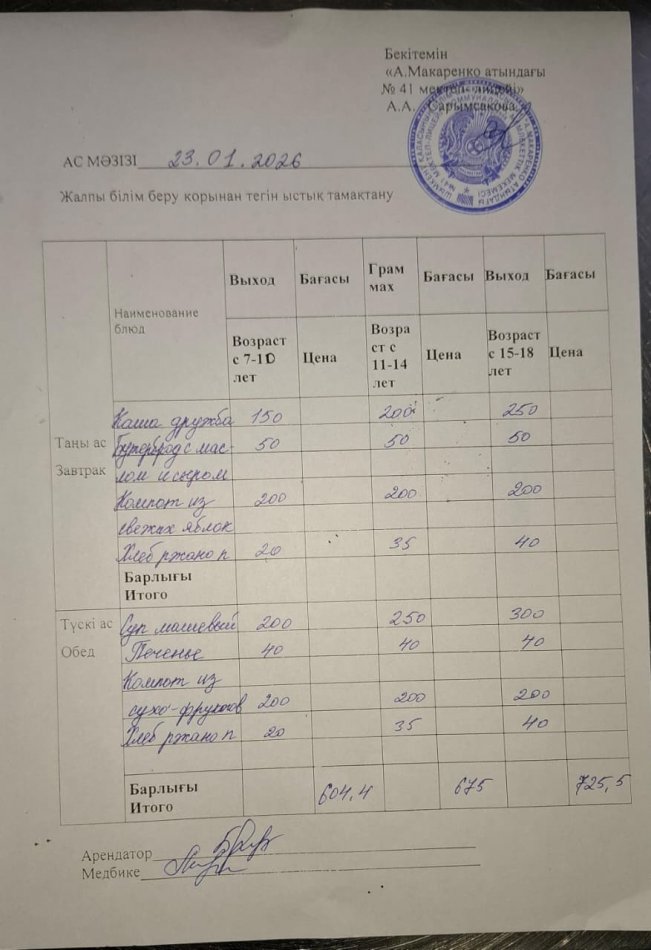 Бекітемін
«А.Макаренко атындағы
№ 41 мектеп- лицейі»
А.А. Сарымсақова
АС МӘЗІЗІ 23.01.2026
Жалпы білім беру қорынан тегін ыстық тамақтану
Наименование блюд Выход Бағасы Грам мах Бағасы Выход Бағасы
Возраст с 7-10 лет Цена Возра ст с 11-14 лет Цена Возраст с 15-18 лет Цена
Таңы ас
Завтрак
Каша дружба 150 200 250
Бутерброд с мас- 50 50 50
лом и сыром
Компот из 200 200 200
свежих яблок
Хлеб ржано п 20 35 40
Барлығы
Итого
Түскі ас
Обед
Суп машевый 200 250 300
Печенье 40 40 40
Компот из
сухо-фруктов 200 200 200
Хлеб ржано п 20 35 40
Барлығы
Итого 604,4 675 725,5
Арендатор
Медбике